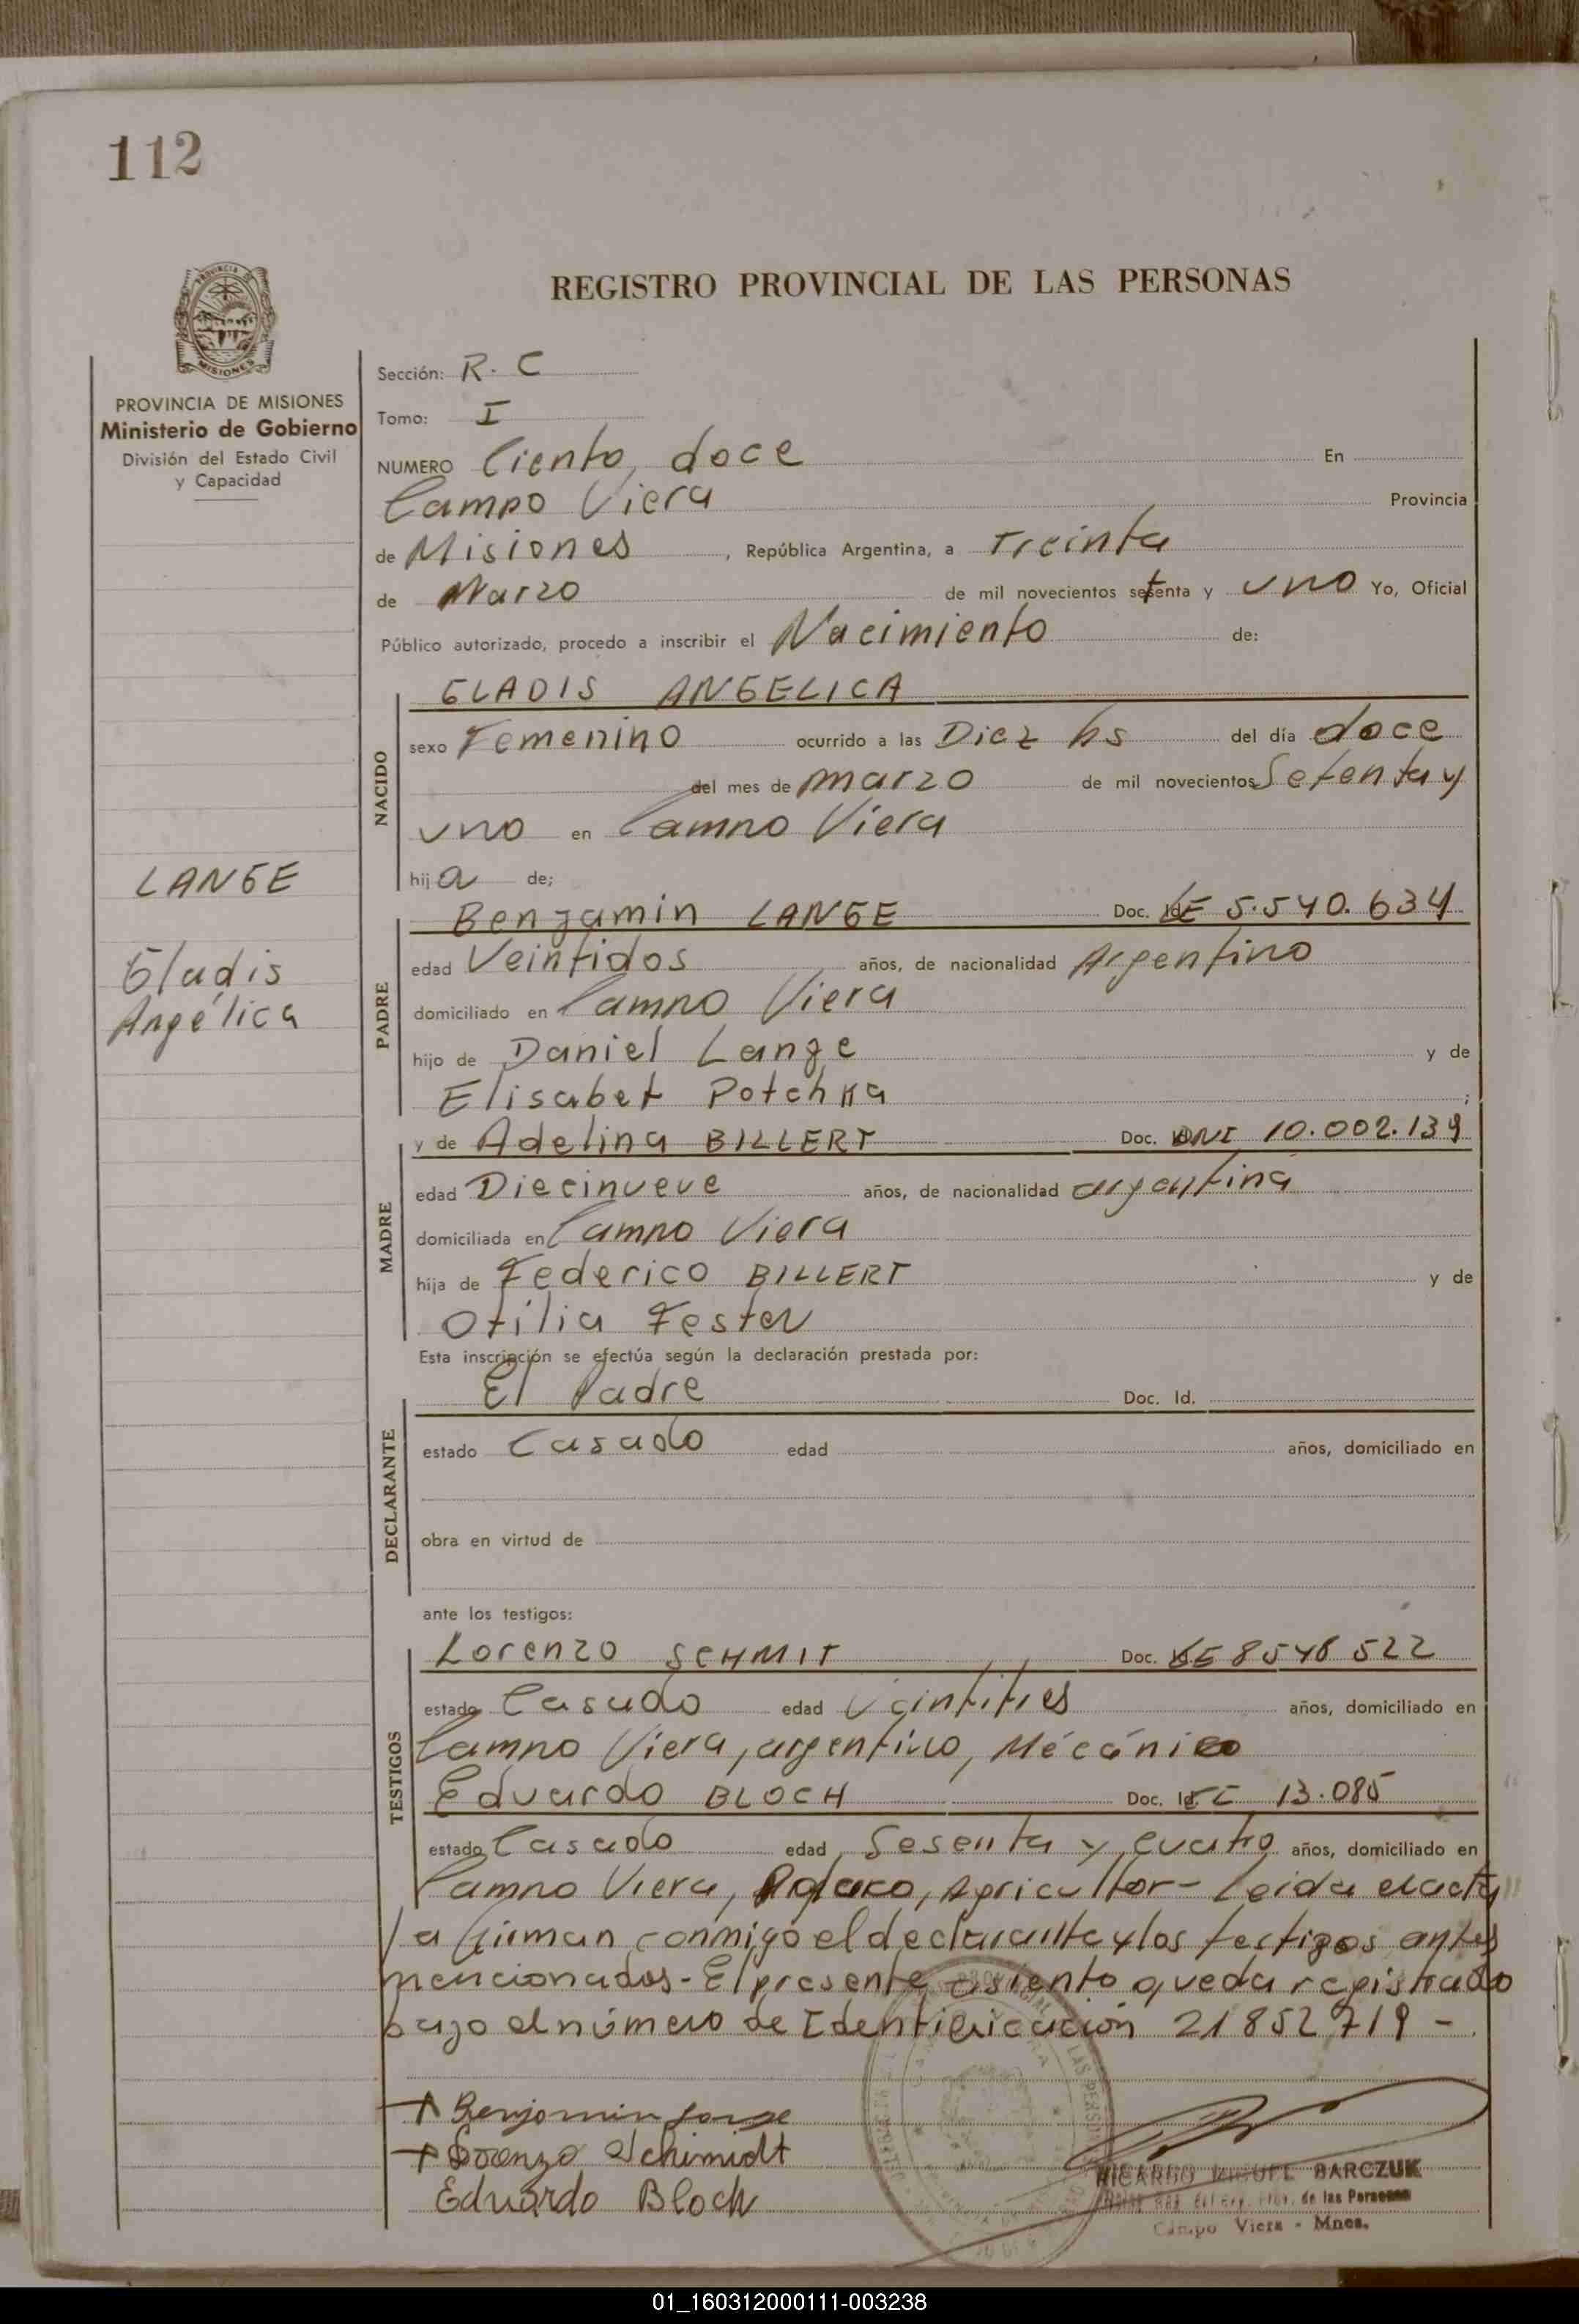 112
REGISTRO PROVINCIAL DE LAS PERSONAS
MISIONES
PROVINCIA DE MISIONES
Ministerio de Gobierno
División del Estado Civil
y Capacidad
LANGE
Gladis
Angélica
Sección: R. C
Tomo: I
NUMERO Ciento, doce En
Campo Viera Provincia
de Misiones, República Argentina, a Treinta
de Marzo de mil novecientos setenta y uno Yo, Oficial
Público autorizado, procedo a inscribir el Nacimiento de:
NACIDO
GLADIS ANGELICA
sexo Femenino ocurrido a las Diez hs del día doce
del mes de marzo de mil novecientos Setenta y
uno en Campo Viera
hija de;
PADRE
Benjamin LANGE Doc. LE 5.540.634
edad Veintidos años, de nacionalidad Argentino
domiciliado en Campo Viera
hijo de Daniel Lange y de
Elisabet Potchka ;
MADRE
y de Adelina BILLERT Doc. DNI 10.002.139
edad Diecinueve años, de nacionalidad argentina
domiciliada en Campo Viera
hija de Federico BILLERT y de
Otilia Fester
Esta inscripción se efectúa según la declaración prestada por:
DECLARANTE
El Padre Doc. Id.
estado Casado edad años, domiciliado en
obra en virtud de
ante los testigos:
TESTIGOS
Lorenzo SCHMIT Doc. LE 8548 522
estado Casado edad Veintitres años, domiciliado en
Campo Viera, argentino, Mécánico
Eduardo BLOCH Doc. Id. 13.085
estado Casado edad Sesenta y cuatro años, domiciliado en
Campo Viera, Polaco, Agricultor - Leida el acta
la firman conmigo el declarante y los testigos antes
mencionados - El presente asiento queda registrado
bajo el número de Identificación 21852719 -
+ Benjamin Lange
+ Lorenzo Schimidt
Eduardo Bloch
RICARDO MIGUEL BARCZUK
Prov. de las Personas
Campo Viera - Mnes.
01_160312000111-003238